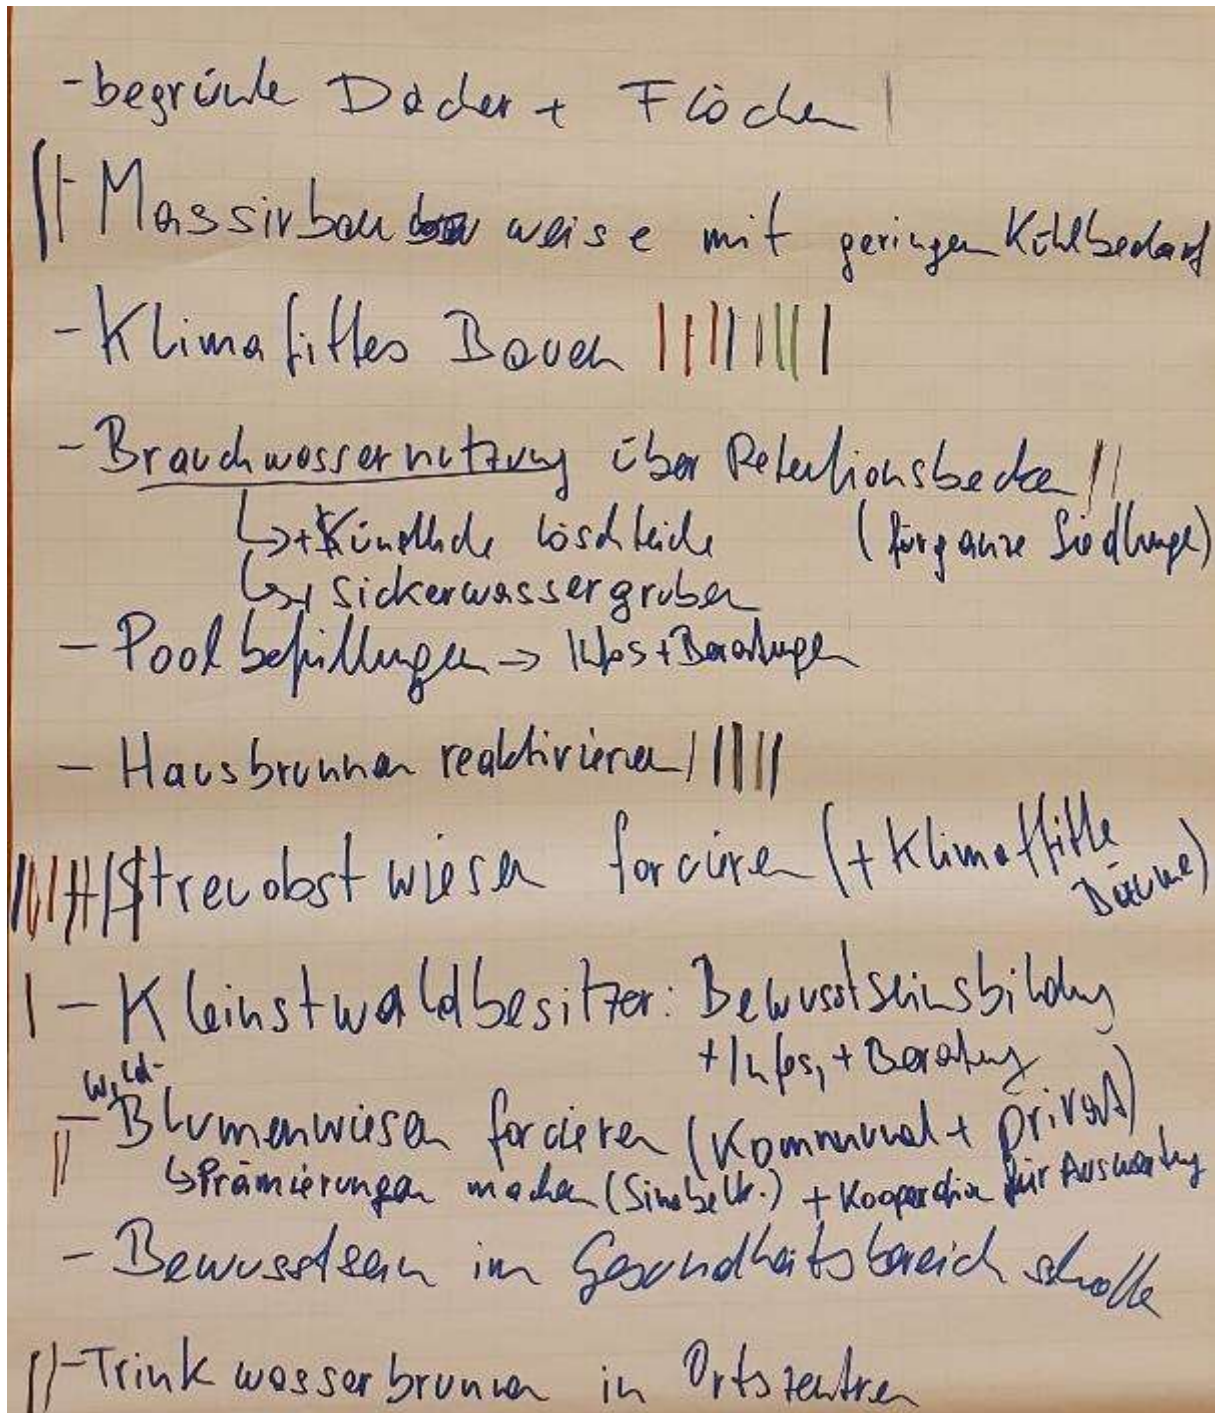 - begrünte Dächer + Flächen
- Massivbau weise mit geringen Kühlbedarf
- Klimafittes Bauen
- Brauchwassernutzung über Retentionsbecken
↳ + Künstliche Löschteiche (für ganze Siedlungen)
↳ + Sickerwassergruben
- Poolbefüllungen → Infos + Beratungen
- Hausbrunnen reaktivieren
Streuobstwiesen forcieren (+ Klimafitte
Bäume)
- Kleinstwaldbesitzer: Bewusstseinsbildung
+ Infos, + Beratung
Wild-
- Blumenwiesen forcieren (Kommunal + privat)
↳ Prämierungen machen ( ) + Kooperation für
- Bewusstsein im Gesundheitsbereich
- Trinkwasserbrunnen in Ortszentren